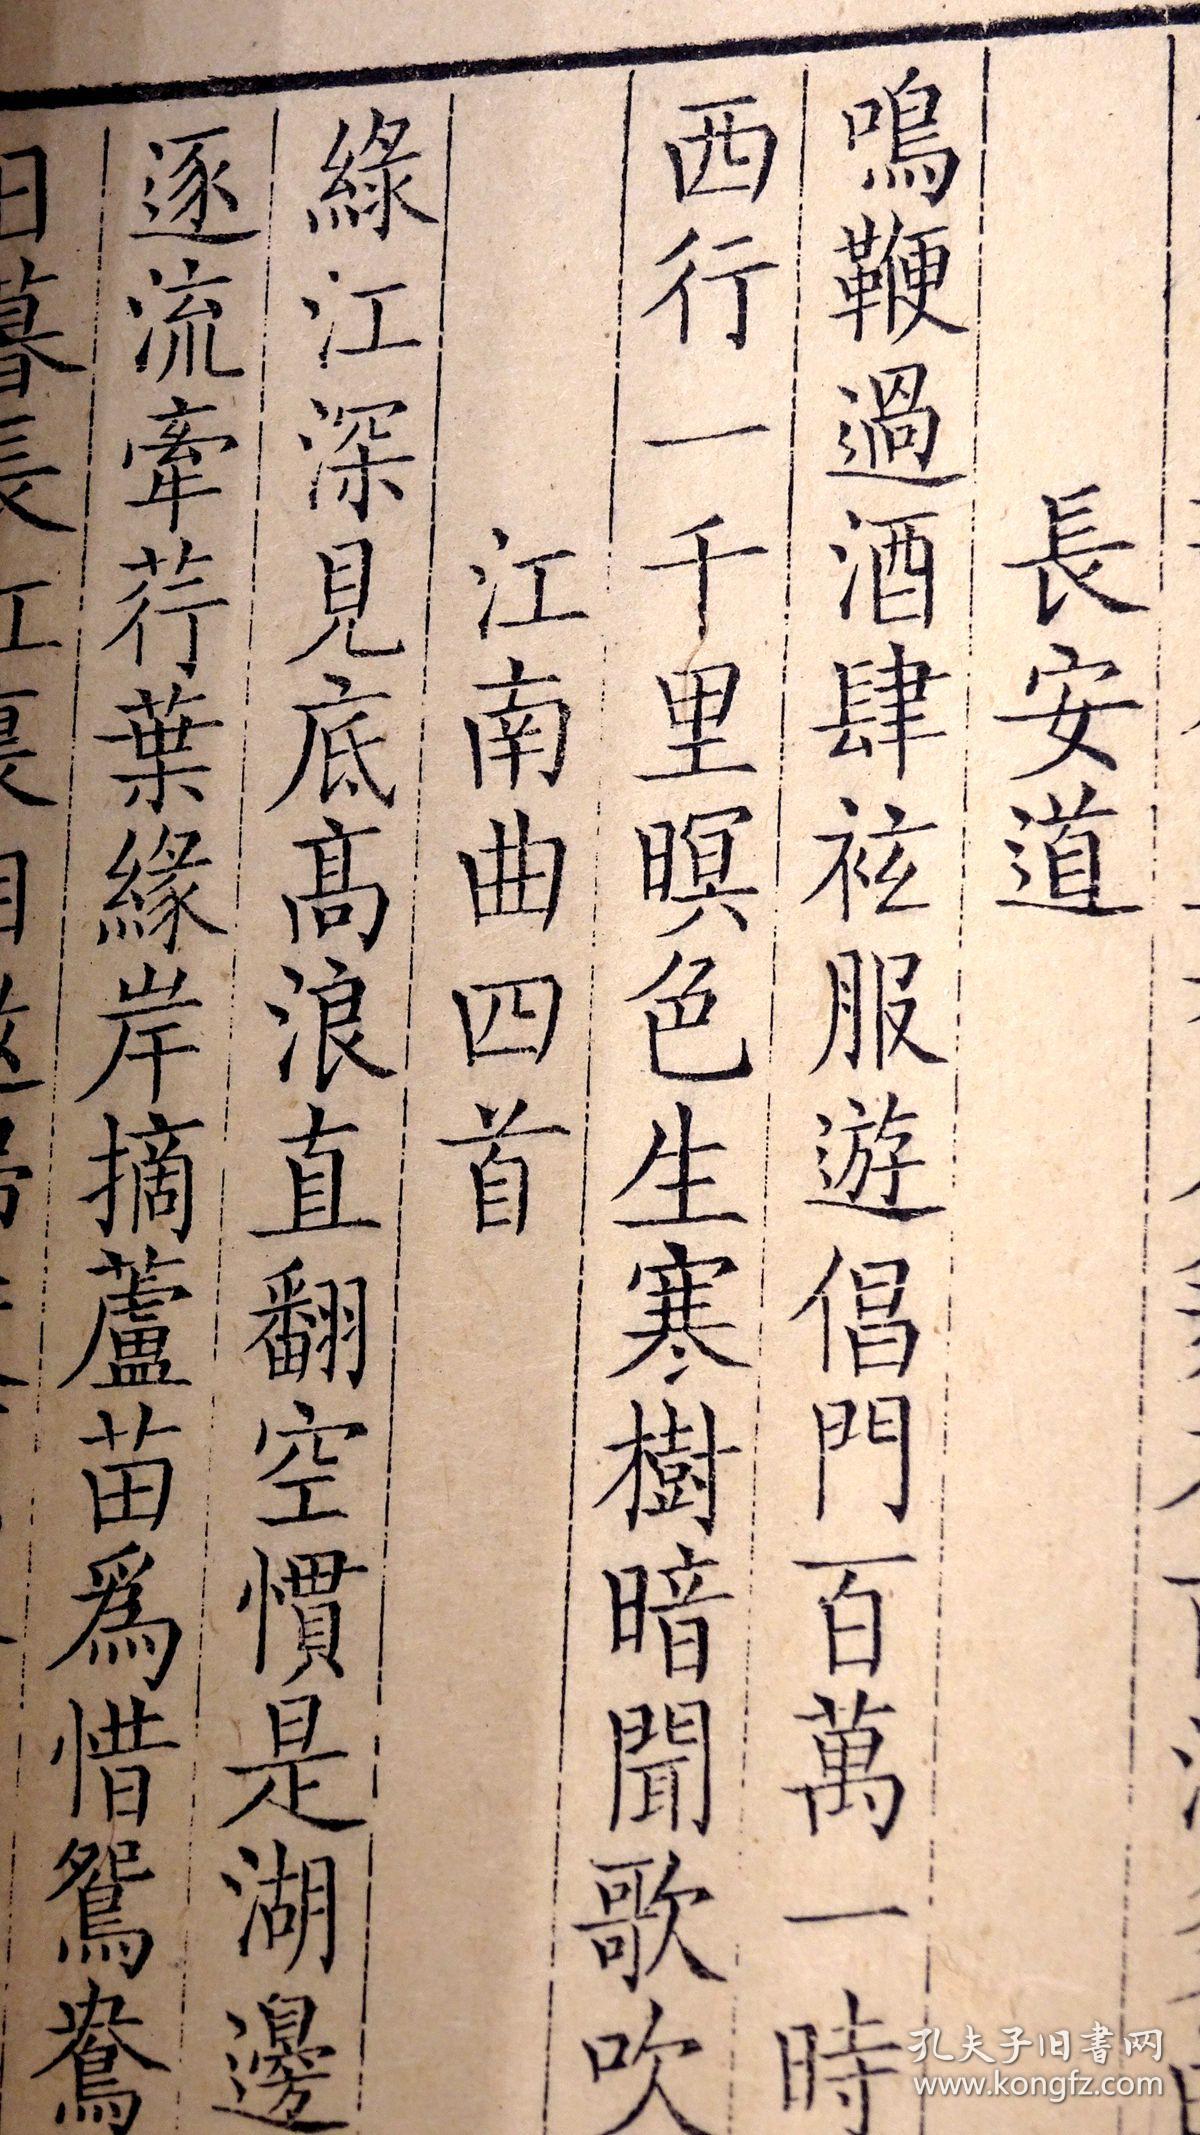 長安道
鳴鞭過酒肆袨服遊倡門百萬一時
西行一千里暝色生寒樹暗聞歌吹
江南曲四首
綠江深見底高浪直翻空慣是湖邊
逐流牽荇葉緣岸摘蘆苗爲惜鴛鴦
日暮長江裏相邀歸
孔夫子旧书网
www.kongfz.com